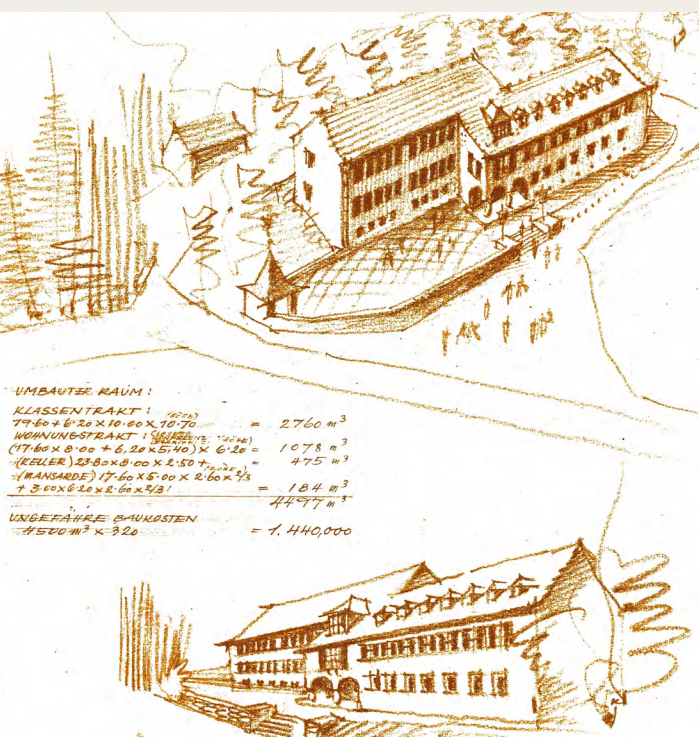 UMBAUTER RAUM:
KLASSENTRAKT:
19.60 + 6.20 x 10.00 x 10.70 = 2760 m³
WOHNUNGSTRAKT:
(17.60 x 8.00 + 6,20 x 5.40) x 6.20 = 1078 m³
(KELLER) 23.80 x 8.00 x 2.50 + = 475 m³
(MANSARDE) 17.60 x 5.00 x 2.60 x 2/3
+ 3.00 x 6.20 x 2.60 x 2/3 = 184 m³
4497 m³
UNGEFÄHRE BAUKOSTEN
4500 m³ x 320 = 1.440,000